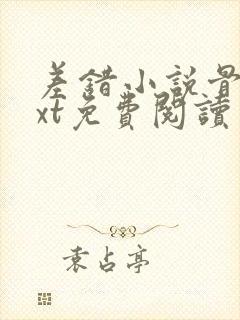 差錯小説
xt免費閱讀
袁占亭